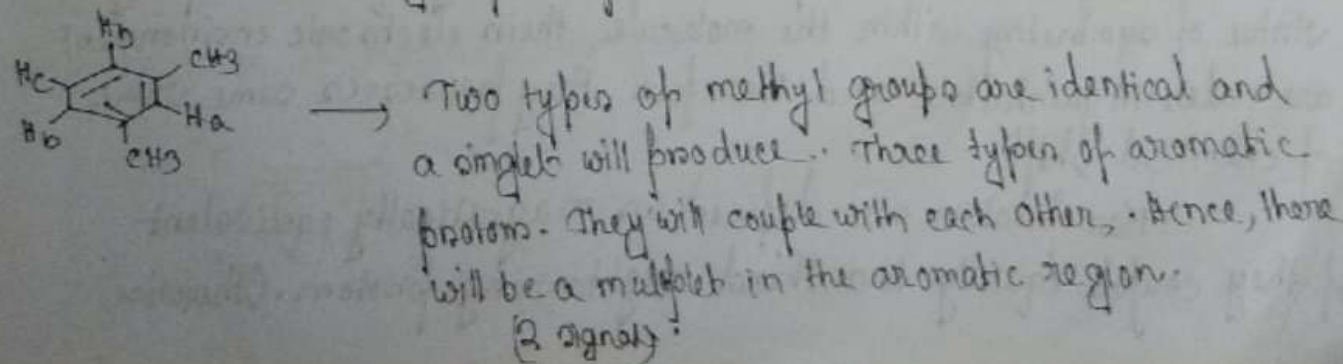 Hb
CH3
Hc
Ha
Hb
CH3
Two types of methyl groups are identical and
a singlet will produce. Three types of aromatic
protons. They will couple with each other. Hence, there
will be a multiplet in the aromatic region.
(2 signals)